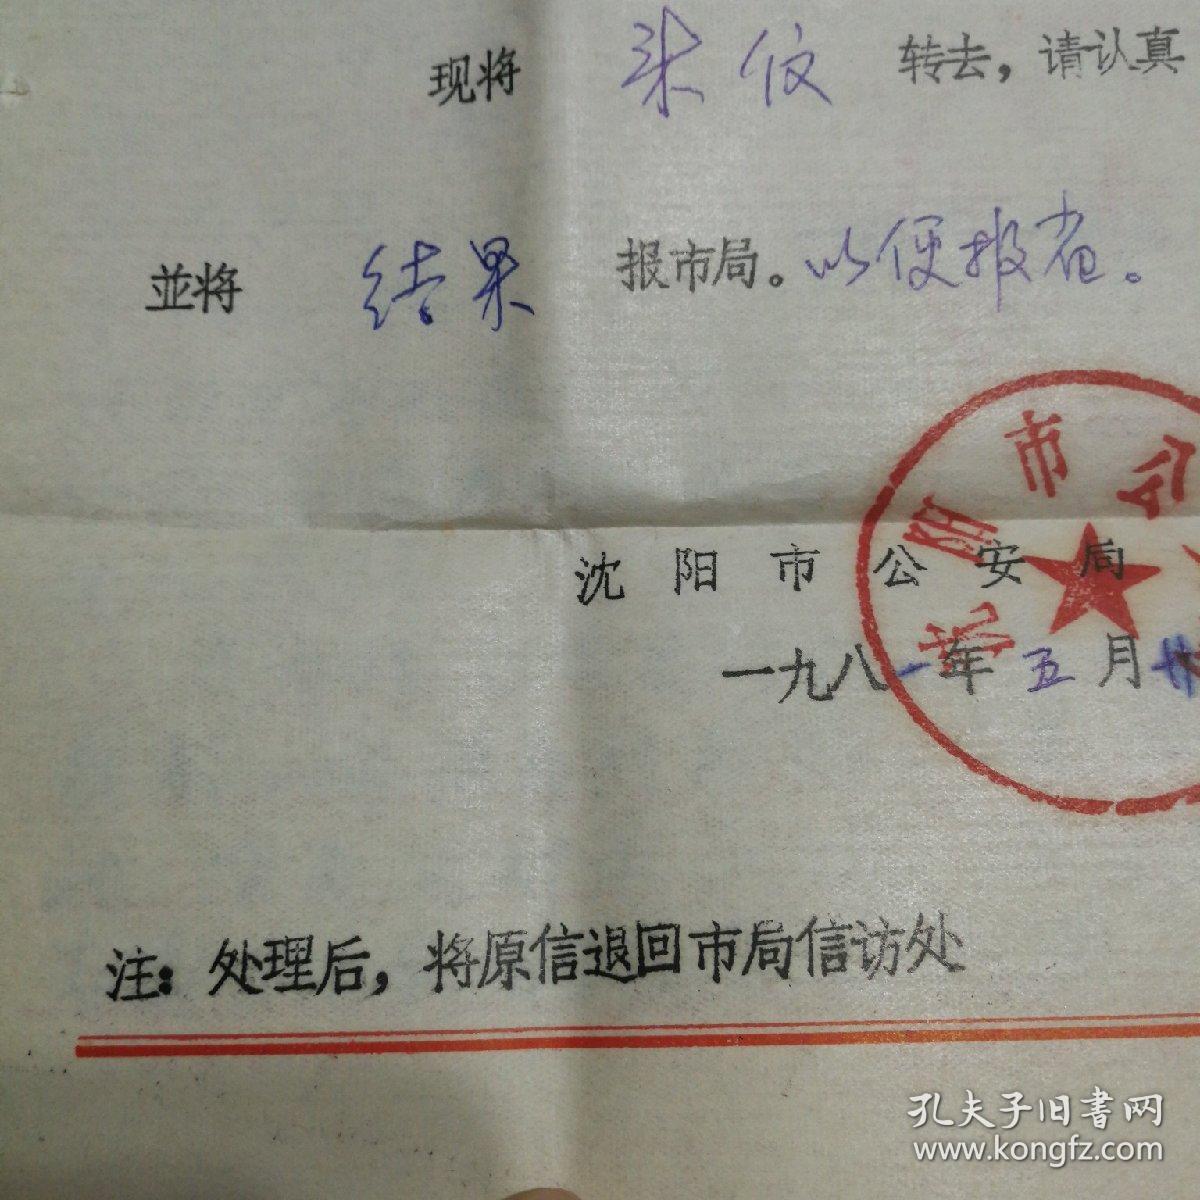 现将 来仪 转去，请认真
並将 结果 报市局。以便报省。
沈阳市公安局
沈阳市公安局
一九八一年五月廿
注：处理后，将原信退回市局信访处
孔夫子旧书网
www.kongfz.com